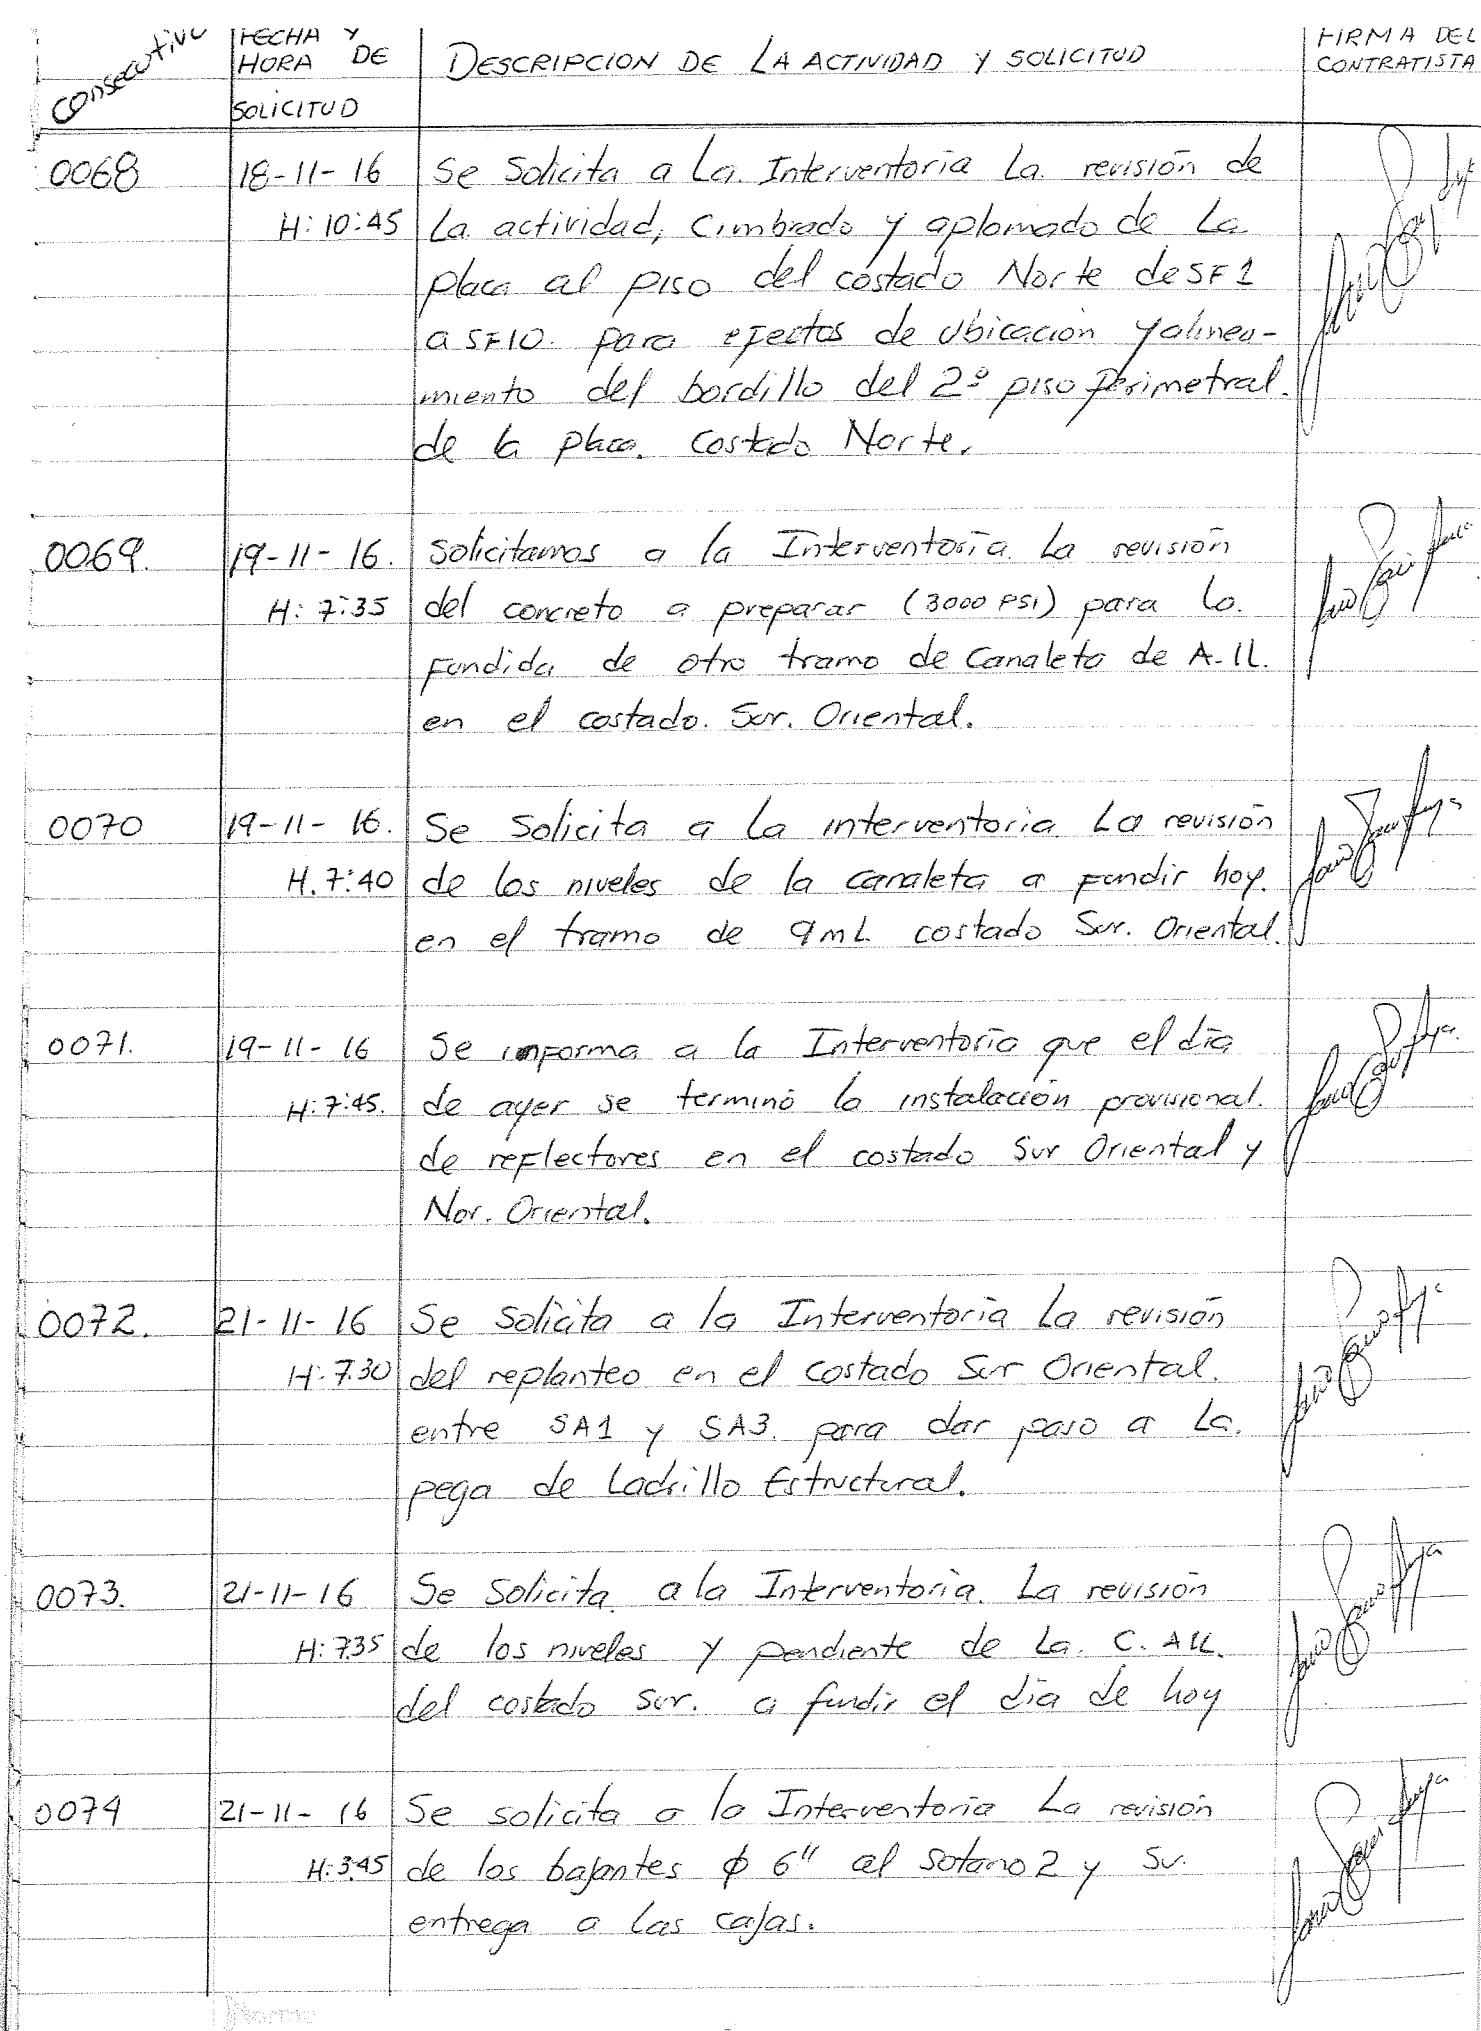 Consecutivo | FECHA Y HORA DE SOLICITUD | DESCRIPCION DE LA ACTIVIDAD Y SOLICITUD | FIRMA DEL CONTRATISTA
0068 | 18-11-16 | Se Solicita a La Interventoría La revisión de
H: 10:45 | La actividad, Cimbrado y aplomado de La
placa al piso del costado Norte de SF1
a SF10. para efectos de ubicación y alinea-
miento del bordillo del 2º piso perimetral.
de la placa. Costado Norte.
0069. | 19-11-16. | Solicitamos a la Interventoría La revisión
H: 7:35 | del concreto a preparar (3000 PSI) para la
fundida de otro tramo de Canaleta de A.LL.
en el costado. Sur. Oriental.
0070 | 19-11-16. | Se Solicita a La interventoria La revisión
H. 7:40 | de los niveles de la canaleta a fundir hoy.
en el tramo de 9mL costado Sur. Oriental.
0071. | 19-11-16 | Se informa a la Interventoría que el día
H: 7:45. | de ayer se terminó la instalación provisional.
de reflectores en el costado Sur Oriental y
Nor. Oriental.
0072. | 21-11-16 | Se Solicita a la Interventoría La revisión
H: 7.30 | del replanteo en el costado Sur Oriental.
entre SA1 y SA3. para dar paso a La.
pega de Ladrillo Estructural.
0073. | 21-11-16 | Se Solicita. a la Interventoría. La revisión
H: 735 | de los niveles y pendiente de La. C. ALL.
del costado Sur. a fundir el día de hoy
0074 | 21-11-16 | Se solicita a la Interventoría La revisión
H: 3:45 | de los bajantes ϕ 6" al sotano 2 y Su.
entrega a las cajas.
Norma